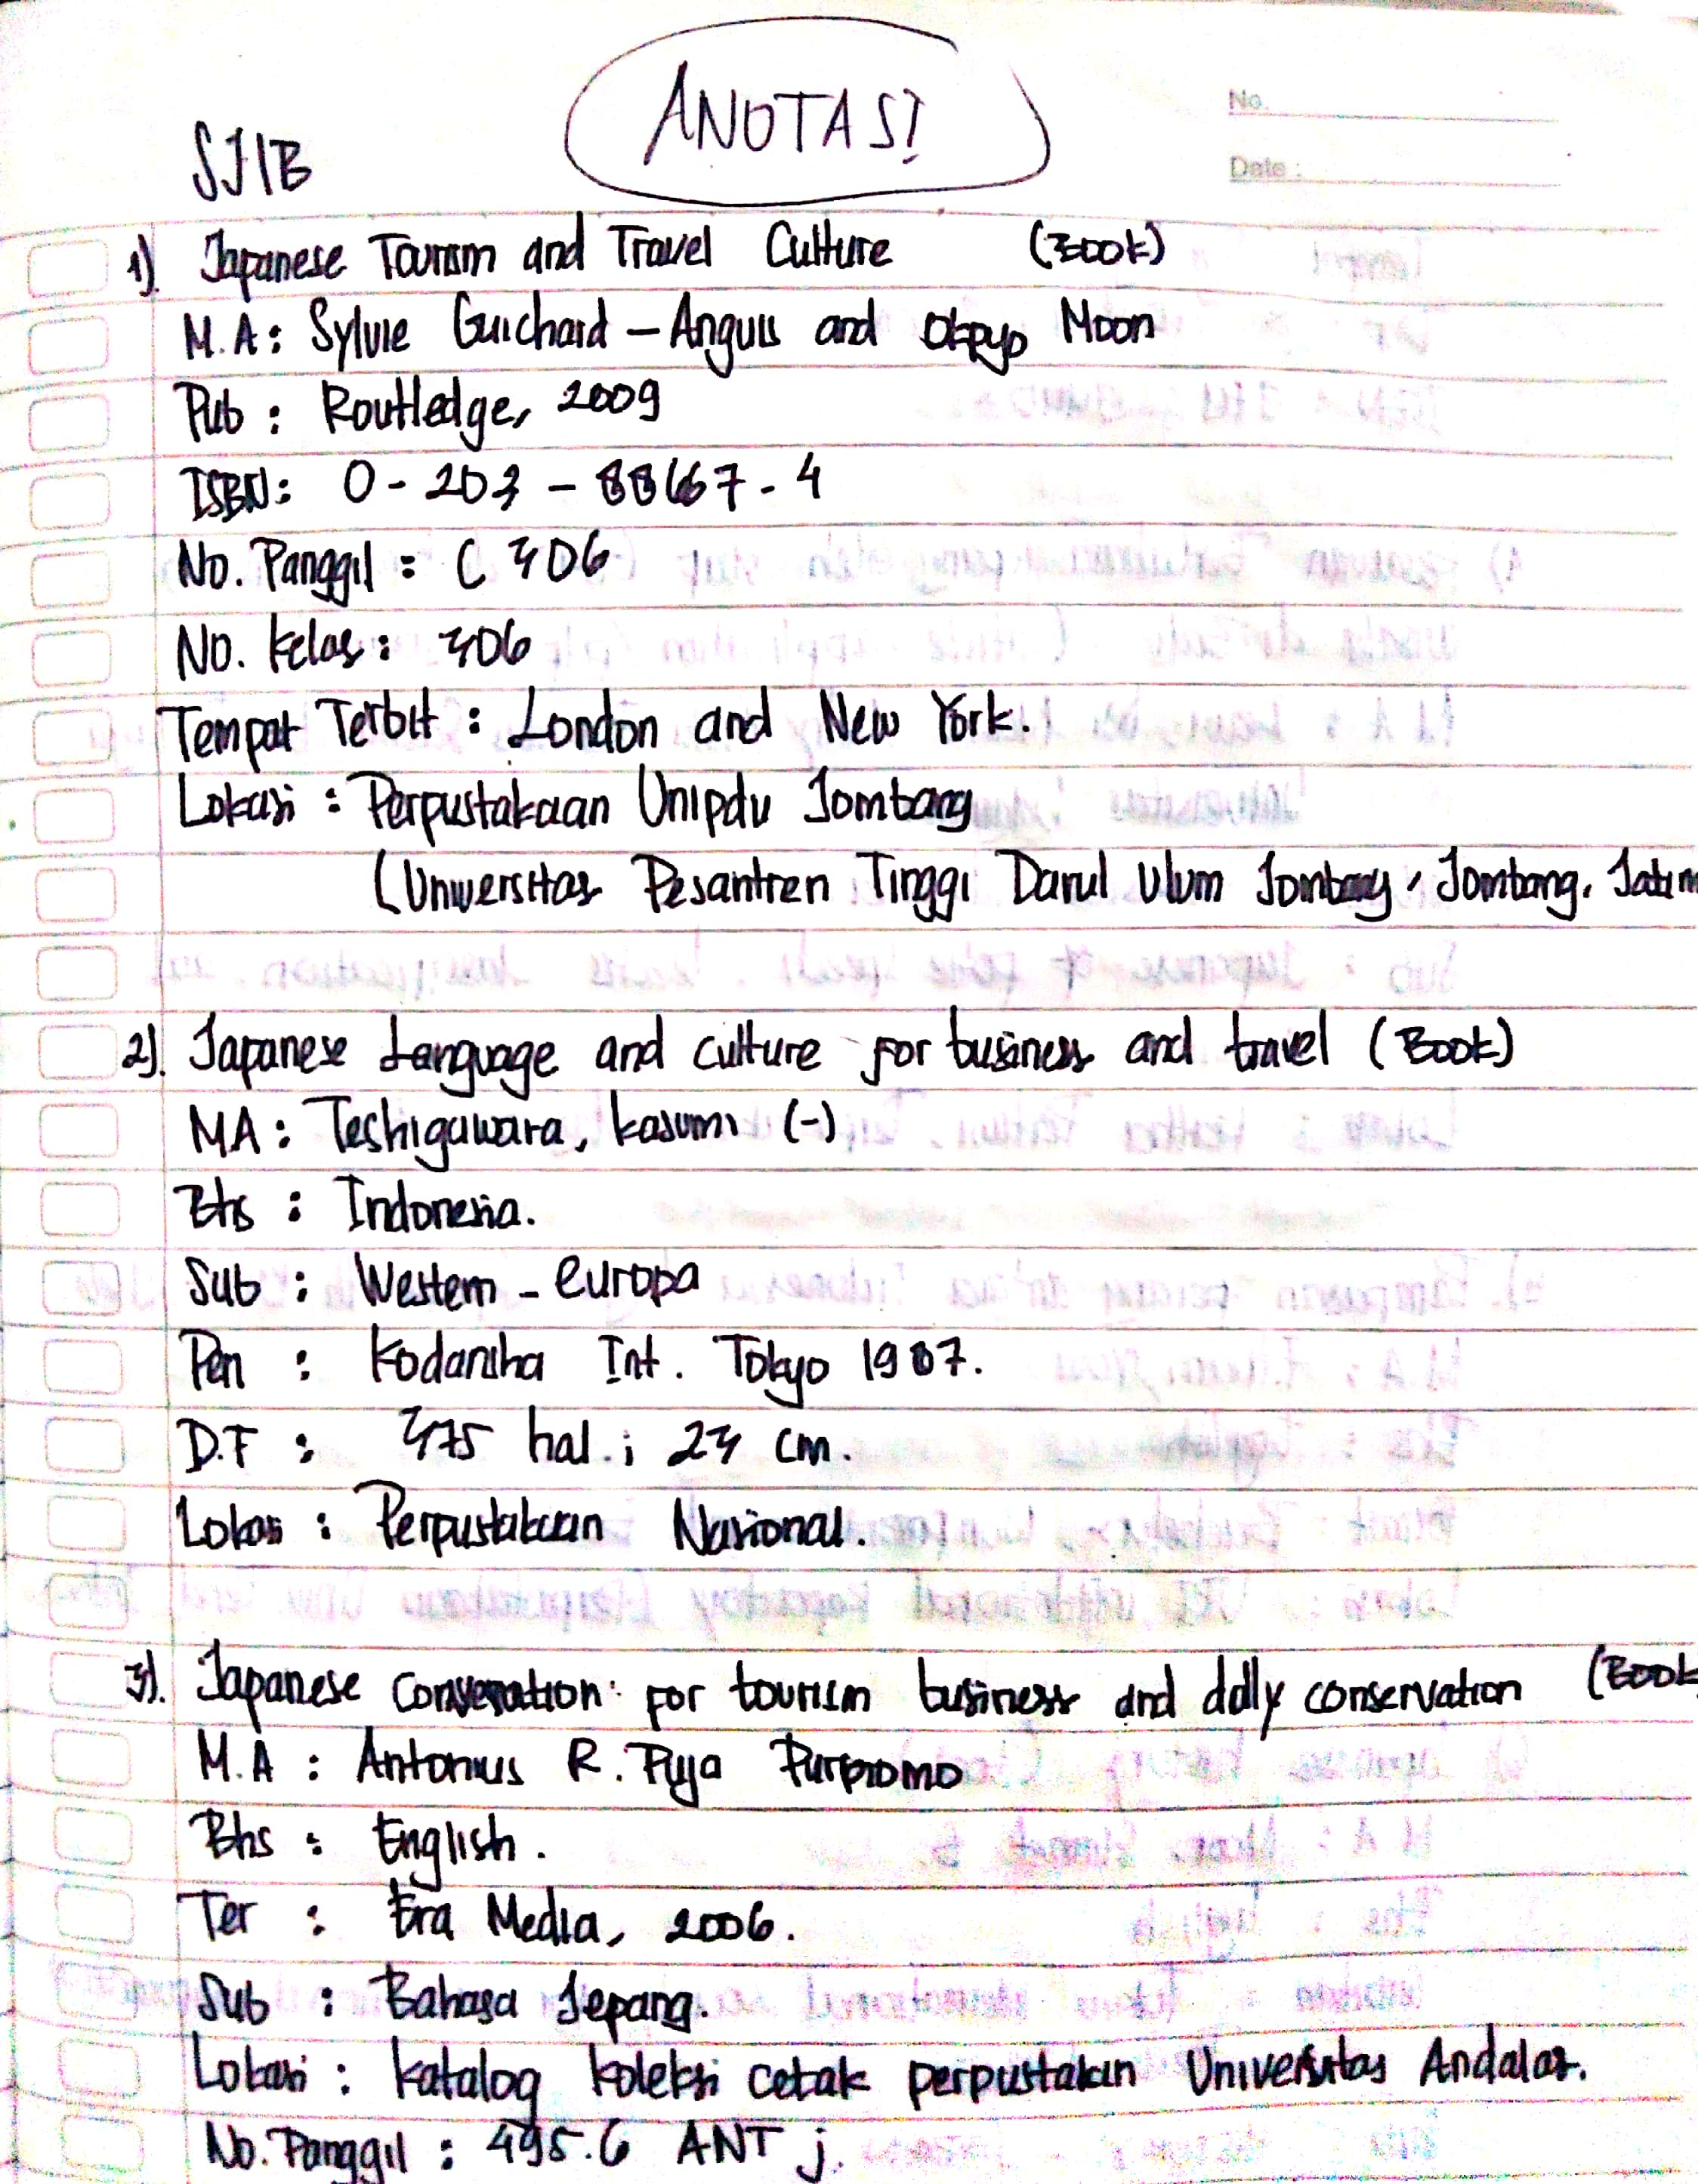 ANOTASI
No.
Date :
SJIB
1). Japanese Tourism and Travel Culture (Book)
M.A : Sylvie Guichard - Anguis and Okpyo Moon
Pub : Routledge, 2009
ISBN : 0 - 203 - 88667 - 4
No. Panggil : C 306
No. Kelas : 306
Tempat Terbit : London and New York.
Lokasi : Perpustakaan Unipdu Jombang
(Universitas Pesantren Tinggi Darul Ulum Jombang, Jombang, Jatim
2). Japanese Language and culture for business and travel (Book)
MA : Teshigawara, Kasumi (-)
Bhs : Indonesia.
Sub : Western - europa
Pen : Kodansha Int. Tokyo 1987.
D.F : 375 hal. ; 23 cm.
Lokasi : Perpustakaan Nasional.
3). Japanese Conversation : for tourism business and daily conservation (Book
M.A : Antonius R. Pujo Purnomo
Bhs : English.
Ter : Era Media, 2006.
Sub : Bahasa Jepang.
Lokasi : Katalog Koleksi cetak perpustakan Universitas Andalas.
No. Panggil : 495.6 ANT j.